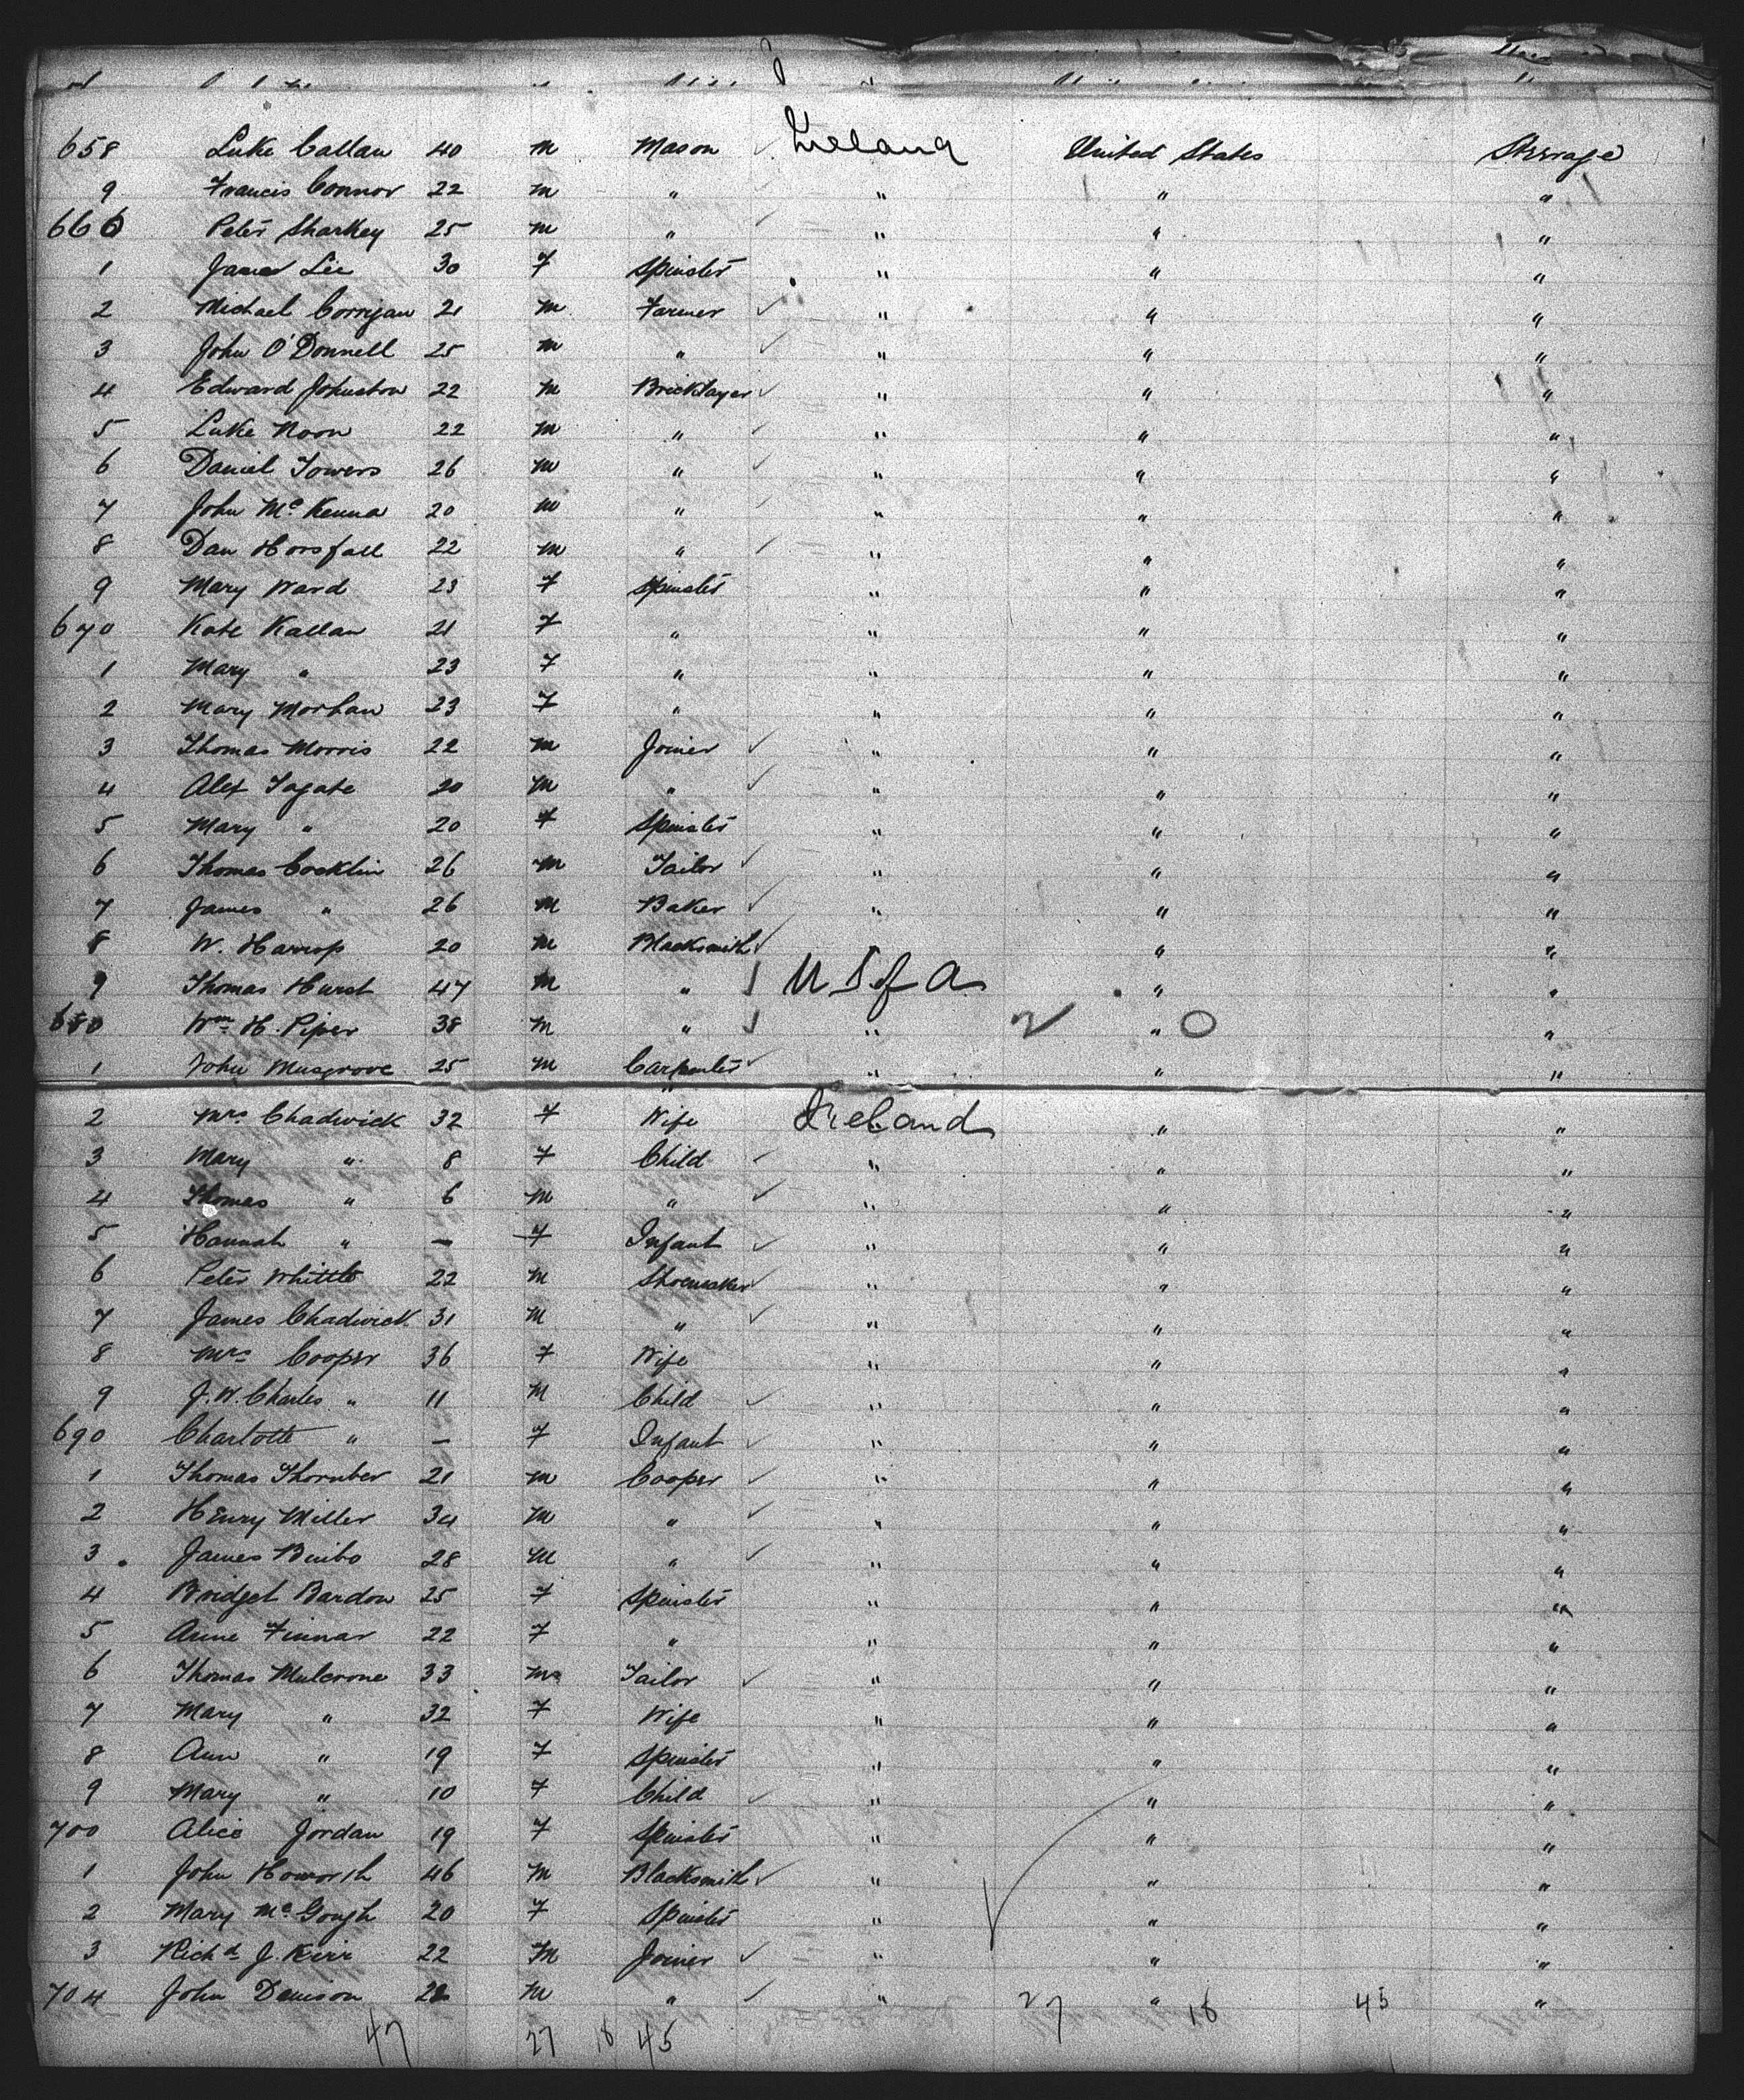 658 Luke Callan 40 m Mason ✓ Ireland United States Steerage
9 Francis Connor 22 m " ✓ " " "
660 Peter Sharkey 25 m " ✓ " " "
1 Lee 30 F Spinster " " "
2 Michael Corrigan 21 m Farmer ✓ " " "
3 John O'Donnell 25 m " ✓ " " "
4 Edward Johnston 22 m Bricklayer ✓ " " "
5 Luke Noon 22 m " ✓ " " "
6 Daniel Towers 26 m " ✓ " " "
7 John McKenna 20 m " ✓ " " "
8 Dan Horsfall 22 m " ✓ " " "
9 Mary Ward 23 F Spinster " " "
670 Kate Kallan 21 F " " " "
1 Mary " 23 F " " " "
2 Mary Morhan 23 F " " " "
3 Thomas Morris 22 m Joiner ✓ " " "
4 Alex Tagate 20 m " ✓ " " "
5 Mary " 20 F Spinster " " "
6 Thomas Cocklin 26 m Tailor ✓ " " "
7 James " 26 m Baker ✓ " " "
8 W. Harrop 20 m Blacksmith ✓ " " "
9 Thomas Hurst 47 m " U S of A " "
680 Wm H. Piper 38 m " " 2 " 0 "
1 John Musgrove 25 m Carpenter ✓ " " "
2 Mrs Chadwick 32 F Wife Ireland " "
3 Mary " 8 F Child ✓ " " "
4 Thomas " 6 m " ✓ " " "
5 Hannah " — F Infant ✓ " " "
6 Peter Whittle 22 m Shoemaker ✓ " " "
7 James Chadwick 31 m " ✓ " " "
8 Mrs Cooper 36 F Wife " " "
9 J. W. Charles " 11 m Child ✓ " " "
690 Charlotte " — F Infant ✓ " " "
1 Thomas Thornber 21 m Cooper ✓ " " "
2 Henry Miller 34 m " ✓ " " "
3 James Bimbo 28 m " ✓ " " "
4 Bridget Bardon 25 F Spinster " " "
5 Anne Finnar 22 F " " " "
6 Thomas Mulcrone 33 m Tailor ✓ " " "
7 Mary " 32 F Wife " " "
8 Ann " 19 F Spinster " " "
9 Mary " 10 F Child ✓ " " "
700 Alice Jordan 19 F Spinster " " "
1 John Howorth 46 m Blacksmith ✓ " " "
2 Mary McGough 20 F Spinster " " "
3 Richd J. Kirr 22 m Joiner ✓ " " "
704 John Denison m " ✓ " 27 " 18 45 "
47 27 18 45